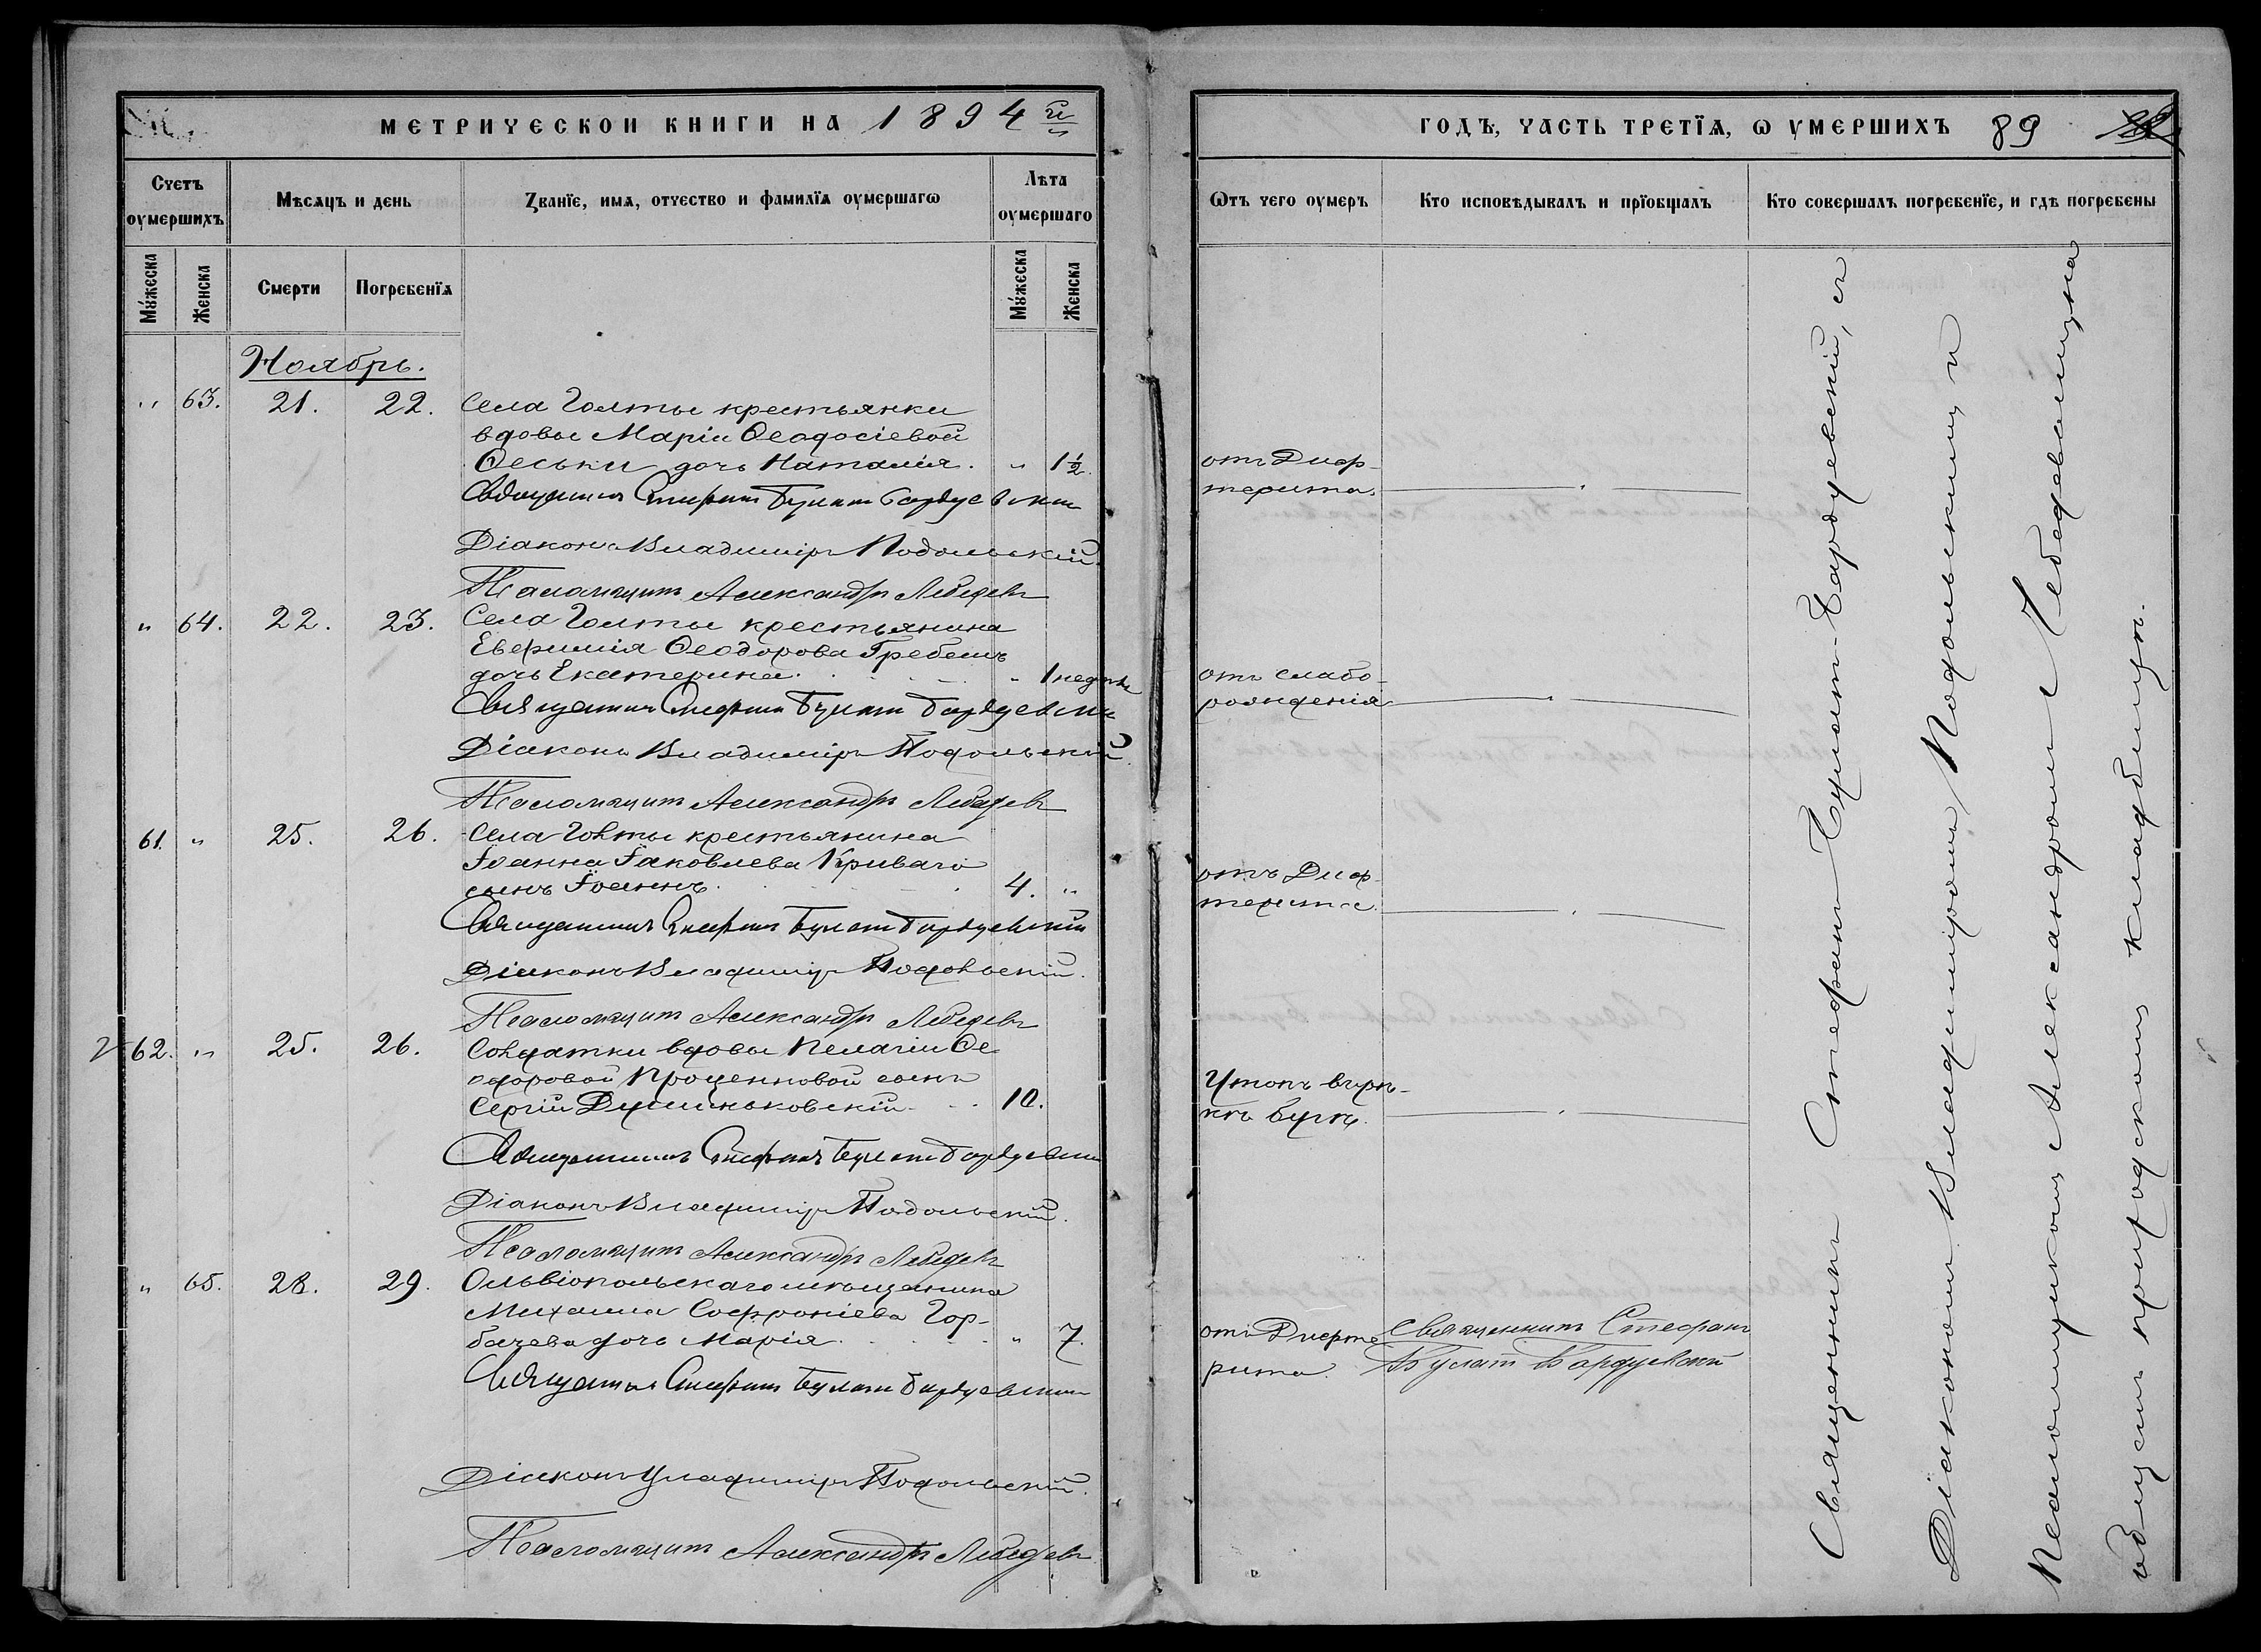 МЕТРИЧЕСКОИ КНИГИ НА 1894 й
Счетъ оумершихъ
Мѣсяцъ и день
Званїе, имя, отчество и фамилїя оумершагѡ
Лѣта оумершаго
Мужеска
Женска
Смерти
Погребенїя
Мужеска
Женска
Ноябрь.
„ 63. 21. 22. Села Голты крестьянки
вдовы Маріи Ѳеодосіевой
Ѳеськи дочь Наталія. „ 1½.
Священникъ Стефанъ Булатъ Бардуевскій
Діаконъ Владиміръ Подольскій.
Псаломщикъ Александръ Лебедевъ
„ 64. 22. 23. Села Голты крестьянина
Евфимія Ѳеодорова Гребень
дочь Екатерина. „ 1 недѣли
Священникъ Стефанъ Булатъ Бардуевскій
Діаконъ Владиміръ Подольскій.
Псаломщикъ Александръ Лебедевъ
61. „ 25. 26. Села Голты крестьянина
Іоанна Іаковлева Криваго
сынъ Іоаннъ. 4. „
Священникъ Стефанъ Булатъ Бардуевскій
Діаконъ Владиміръ Подольскій.
Псаломщикъ Александръ Лебедевъ
62. „ 25. 26. Солдатки вдовы Пелагіи Ѳе
одоровой Проценковой сынъ
Сергій 10.
Священникъ Стефанъ Булатъ Бардуевскій
Діаконъ Владиміръ Подольскій.
Псаломщикъ Александръ Лебедевъ
„ 65. 28. 29. Ольвіопольскаго мѣщанина
Михаила Софроніева Гор-
бачева дочь Марія. „ 7.
Священникъ Стефанъ Булатъ Бардуевскій
Діаконъ Владиміръ Подольскій.
Псаломщикъ Александръ Лебедевъ
ГОДЪ, ЧАСТЬ ТРЕТЇЯ, Ѡ УМЕРШИХЪ 89
Ѿтъ чего оумеръ
Кто исповѣдывалъ и прїобщалъ
Кто совершалъ погребенїе, и гдѣ погребены
отъ Диф-
терита.
отъ слабо-
рожденія
отъ Диф-
терита.
Утонъ въ рѣ-
кѣ Бугѣ.
отъ Дифте
рита.
Священникъ Стефанъ
Булатъ Бардуевскій
Священникъ Стефанъ Булатъ-Бардуевскій, съ
Діакономъ Владиміромъ Подольскимъ и
Псаломщикомъ Александромъ Лебедевымъ на
общемъ приходскомъ кладбищѣ.